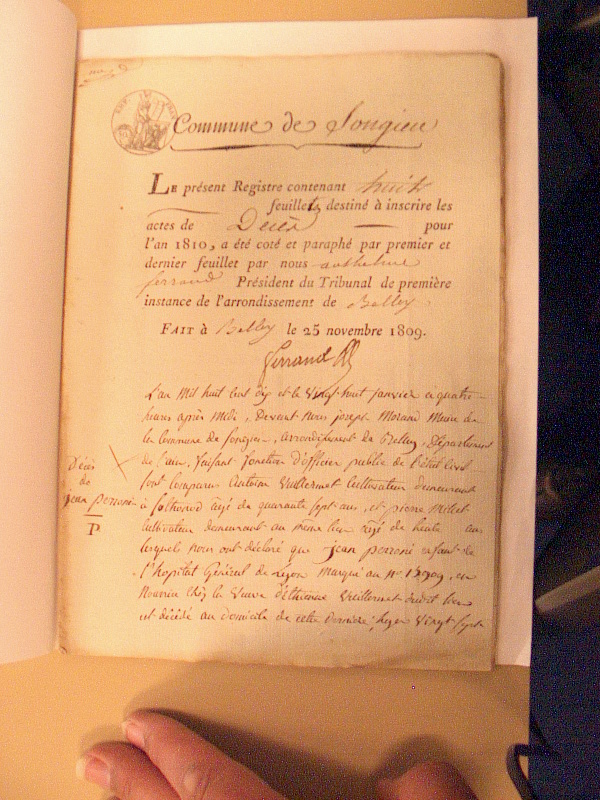 Commune de Songieu
LE présent Registre contenant huit
feuillets destiné à inscrire les
actes de Décès pour
l'an 1810, a été coté et paraphé par premier et
dernier feuillet par nous anthelme
ferrand Président du Tribunal de première
instance de l'arrondissement de Belley
FAIT à Belley le 25 novembre 1809.
ferrand
L'an mil huit cent dix et le vingt huit janvier à quatre
heures après midi, Devant nous joseph Morand Maire de
la Commune de Songieu, arrondissement de Belley, Département
de l'ain, faisant fonction d'officier public de l'état Civil
sont comparus antoine Vuillermet cultivateur demeurant
à sothonod agé de quarante sept ans, et pierre Millet
cultivateur demeurant au même lieu agé de trente ans
lesquels nous ont déclaré que jean perroni enfant de
l'hopital Général de Lyon marqué au n°, en
Nourrice chéz la Veuve d'éthienne Vuillermet dudit lieu
est décédé au domicile de cette dernière hyer vingt sept
Décès
de
jean perroni
P